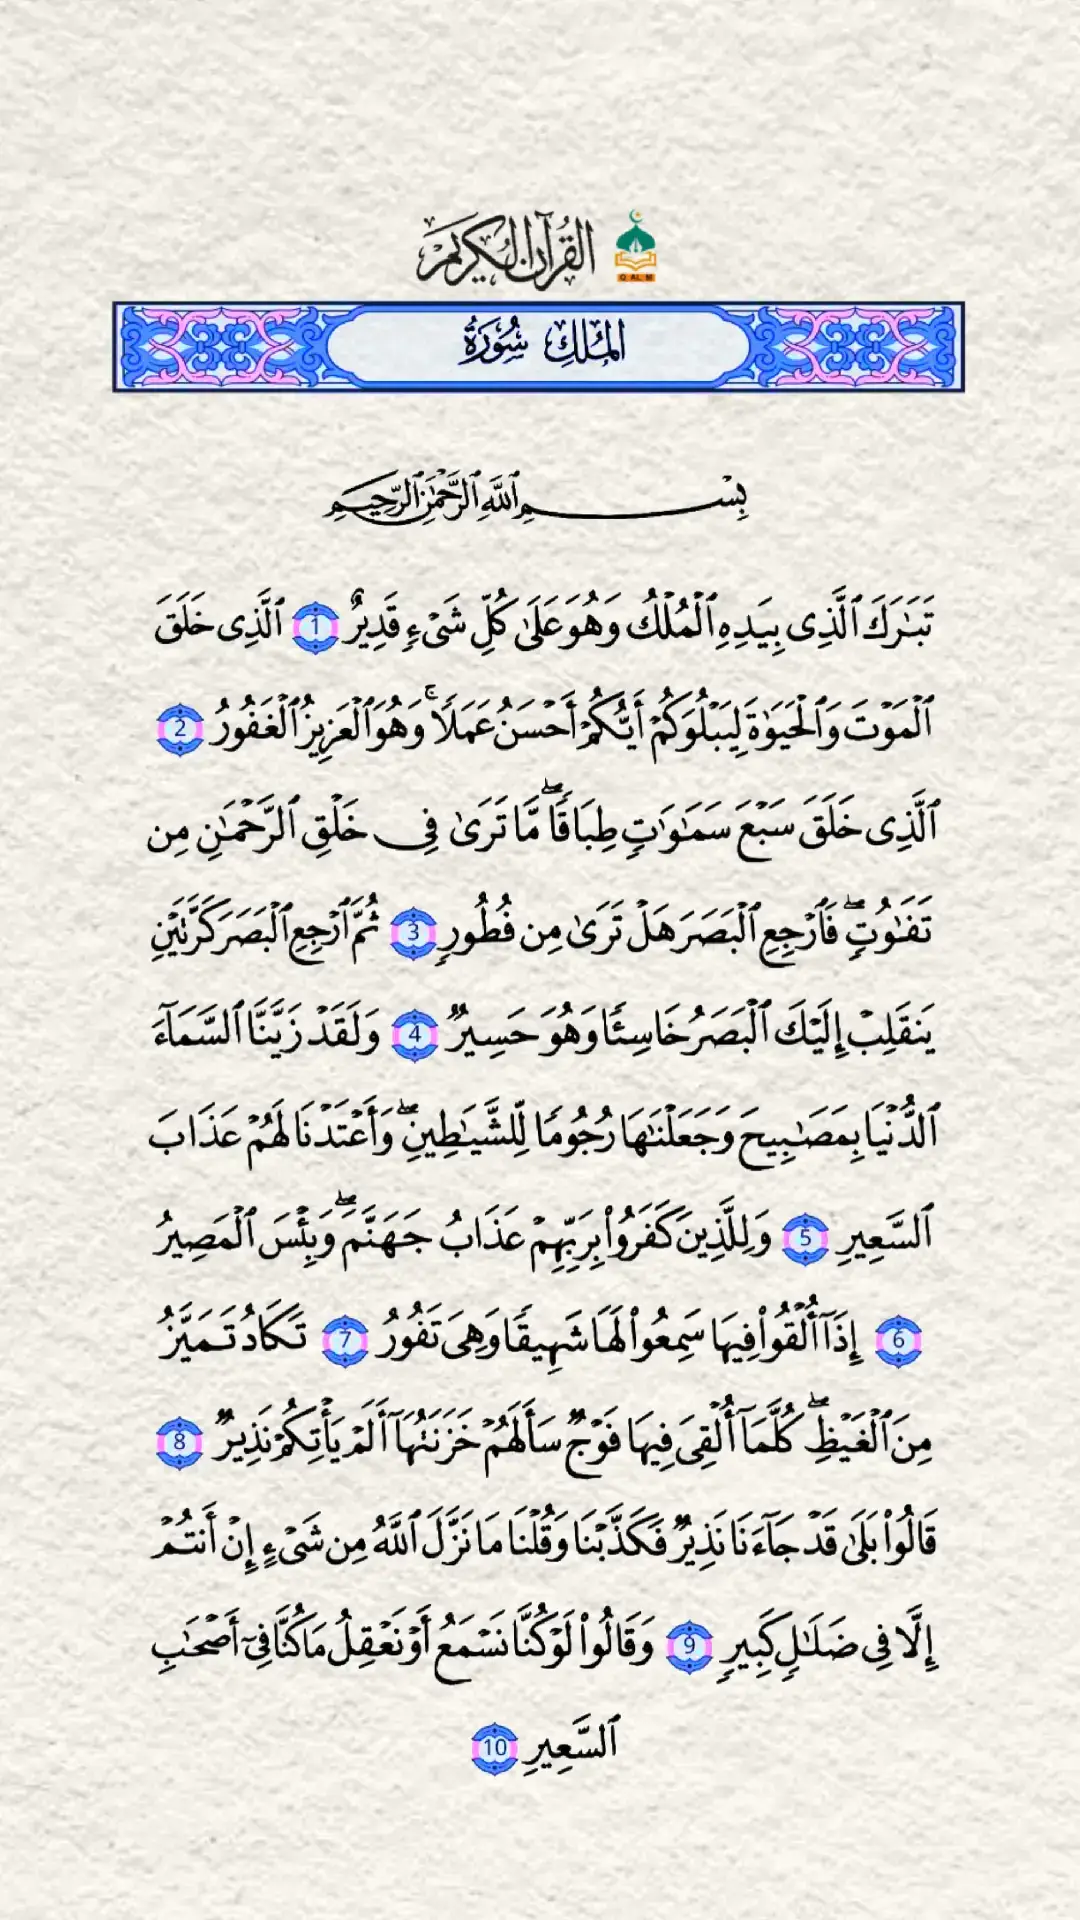 القرآن الكريم
QALM
الملك سورة
بِسْمِ ٱللَّهِ ٱلرَّحْمَٰنِ ٱلرَّحِيمِ
تَبَٰرَكَ ٱلَّذِى بِيَدِهِ ٱلْمُلْكُ وَهُوَ عَلَىٰ كُلِّ شَىْءٍ قَدِيرٌ 1 ٱلَّذِى خَلَقَ
ٱلْمَوْتَ وَٱلْحَيَوٰةَ لِيَبْلُوَكُمْ أَيُّكُمْ أَحْسَنُ عَمَلًا ۚ وَهُوَ ٱلْعَزِيزُ ٱلْغَفُورُ 2
ٱلَّذِى خَلَقَ سَبْعَ سَمَٰوَٰتٍ طِبَاقًا ۖ مَّا تَرَىٰ فِى خَلْقِ ٱلرَّحْمَٰنِ مِن
تَفَٰوُتٍ ۖ فَٱرْجِعِ ٱلْبَصَرَ هَلْ تَرَىٰ مِن فُطُورٍ 3 ثُمَّ ٱرْجِعِ ٱلْبَصَرَ كَرَّتَيْنِ
يَنقَلِبْ إِلَيْكَ ٱلْبَصَرُ خَاسِئًا وَهُوَ حَسِيرٌ 4 وَلَقَدْ زَيَّنَّا ٱلسَّمَآءَ
ٱلدُّنْيَا بِمَصَٰبِيحَ وَجَعَلْنَٰهَا رُجُومًا لِّلشَّيَٰطِينِ ۖ وَأَعْتَدْنَا لَهُمْ عَذَابَ
ٱلسَّعِيرِ 5 وَلِلَّذِينَ كَفَرُوا۟ بِرَبِّهِمْ عَذَابُ جَهَنَّمَ ۖ وَبِئْسَ ٱلْمَصِيرُ
6 إِذَآ أُلْقُوا۟ فِيهَا سَمِعُوا۟ لَهَا شَهِيقًا وَهِىَ تَفُورُ 7 تَكَادُ تَمَيَّزُ
مِنَ ٱلْغَيْظِ ۖ كُلَّمَآ أُلْقِىَ فِيهَا فَوْجٌ سَأَلَهُمْ خَزَنَتُهَآ أَلَمْ يَأْتِكُمْ نَذِيرٌ 8
قَالُوا۟ بَلَىٰ قَدْ جَآءَنَا نَذِيرٌ فَكَذَّبْنَا وَقُلْنَا مَا نَزَّلَ ٱللَّهُ مِن شَىْءٍ إِنْ أَنتُمْ
إِلَّا فِى ضَلَٰلٍ كَبِيرٍ 9 وَقَالُوا۟ لَوْ كُنَّا نَسْمَعُ أَوْ نَعْقِلُ مَا كُنَّا فِىٓ أَصْحَٰبِ
ٱلسَّعِيرِ 10